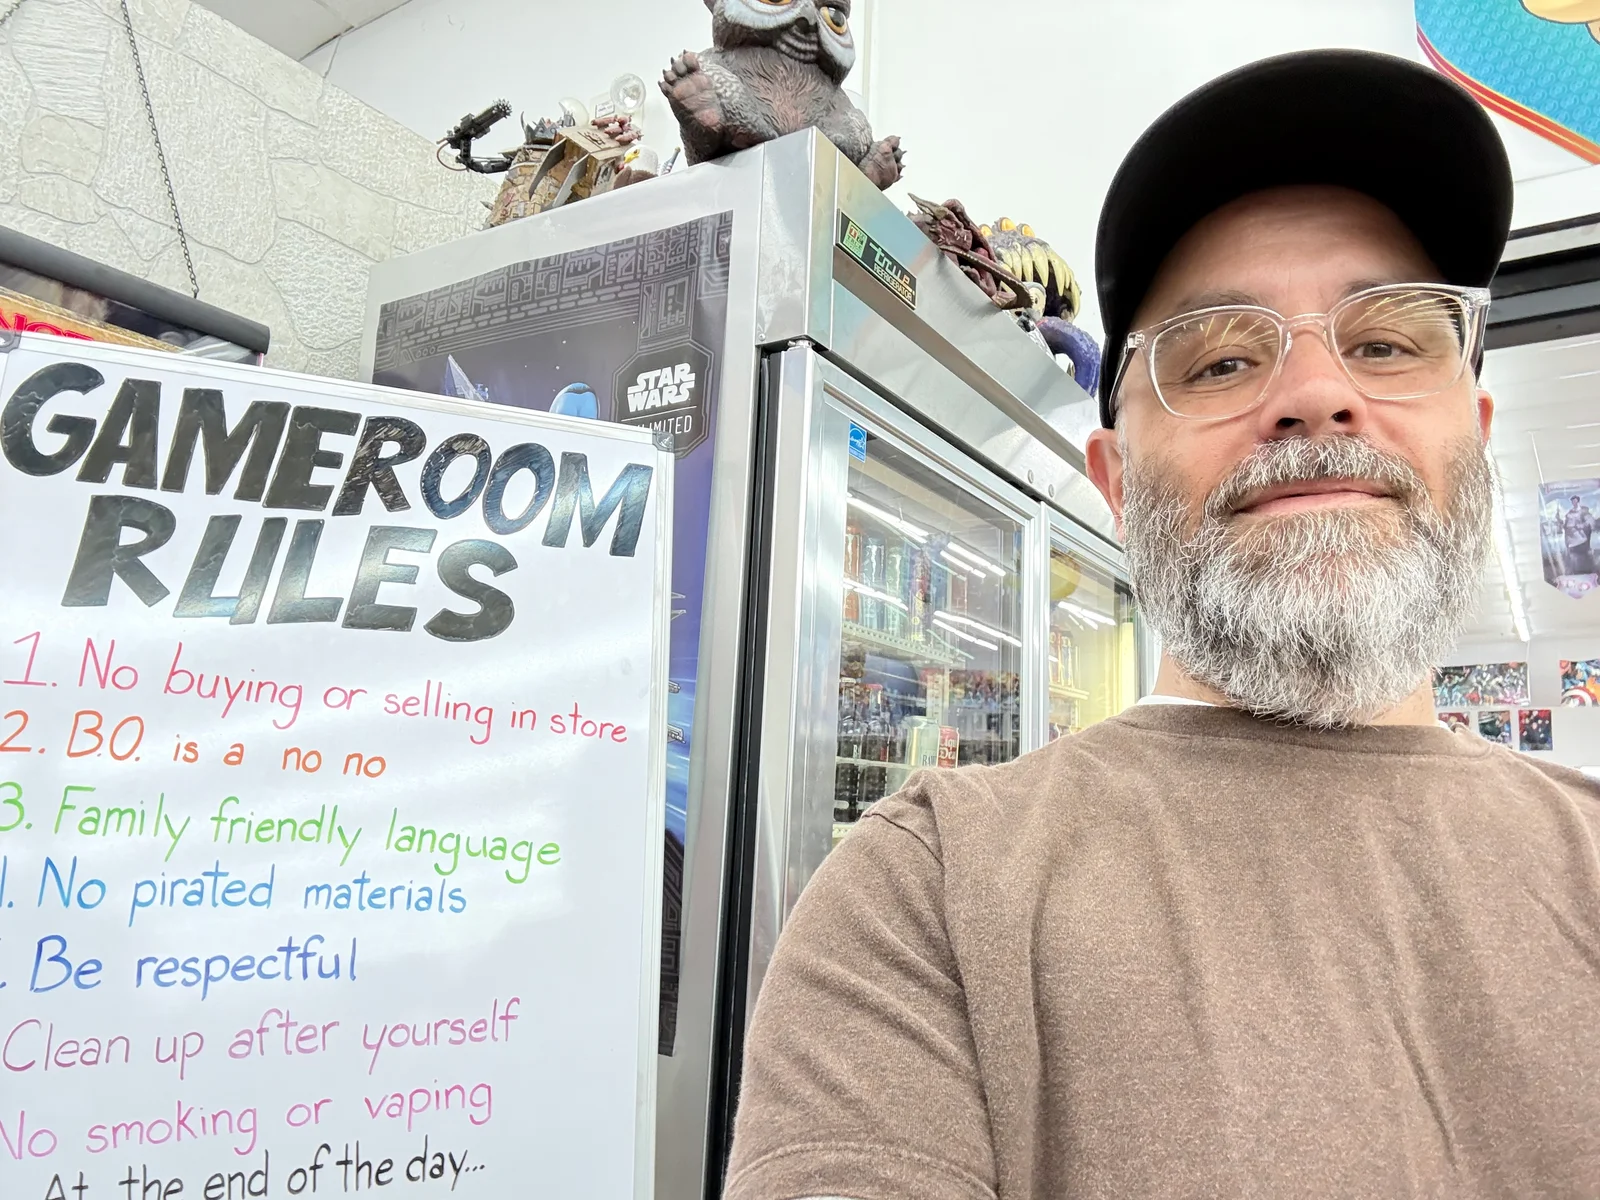 GAMEROOM
RULES
1. No buying or selling in store
2. B.O. is a no no
3. Family friendly language
. No pirated materials
. Be respectful
Clean up after yourself
No smoking or vaping
At the end of the day...
STAR
WARS
UNLIMITED
true
REFRIGERATOR